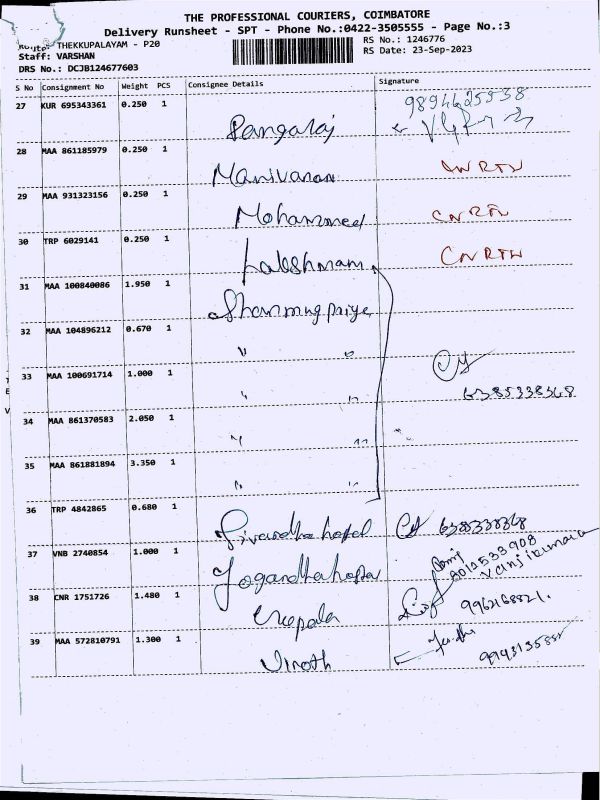 THE PROFESSIONAL COURIERS, COIMBATORE
Delivery Runsheet - SPT - Phone No.:0422-3505555 - Page No.:3
Route: THEKKUPALAYAM - P20
RS No.: 1246776
Staff: VARSHAN
RS Date: 23-Sep-2023
DRS No.: DCJB124677603
S No Consignment No Weight PCS Consignee Details Signature
27 KUR 695343361 0.250 1 Rangaraj 9894625538
28 MAA 861185979 0.250 1 Manivanan CNRTN
29 MAA 931323156 0.250 1 Mohammed CNRTN
30 TRP 6029141 0.250 1 Lakshmanan CNRTN
31 MAA 100840086 1.950 1 Shanmugpriya
32 MAA 104896212 0.670 1 " "
33 MAA 100691714 1.000 1 " " 6385338368
34 MAA 861370583 2.050 1 " "
35 MAA 861881894 3.350 1 " "
36 TRP 4842865 0.680 1 6385338368
37 VNB 2740854 1.000 1 8012533908
38 CNR 1751726 1.480 1 9962168821.
39 MAA 572810791 1.300 1 Vinoth